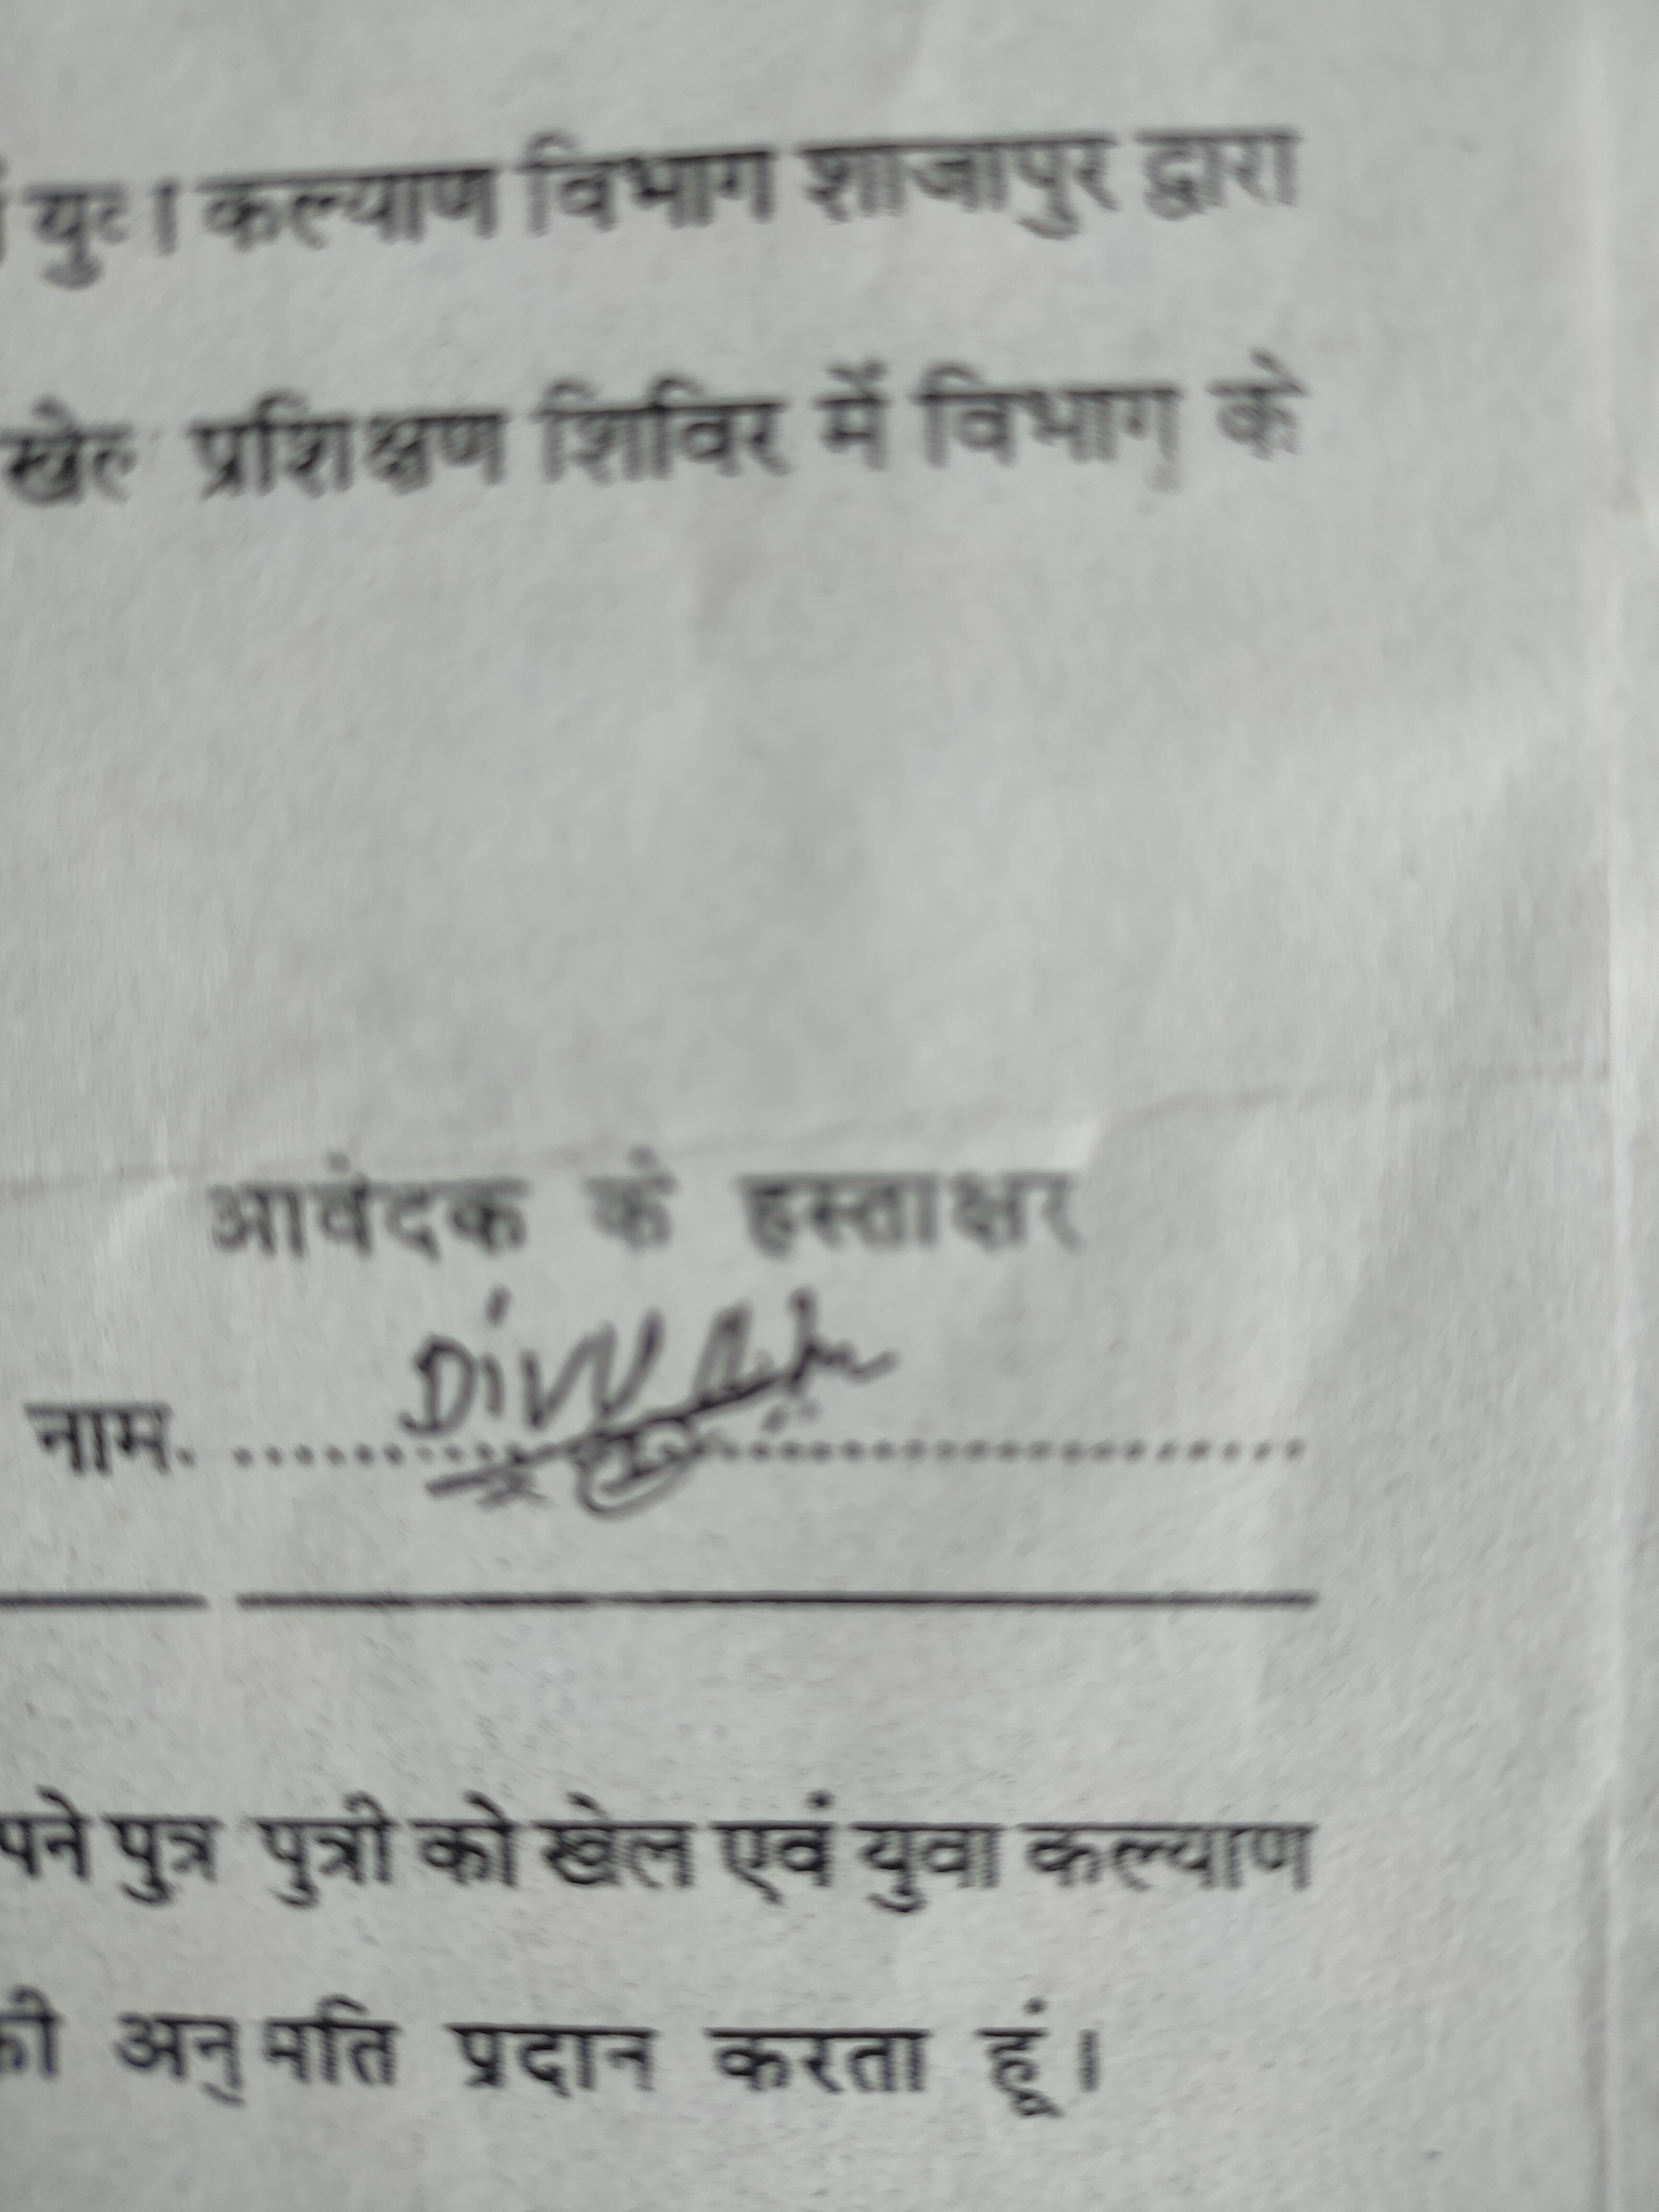 युवा कल्याण विभाग शाजापुर द्वारा
खेल प्रशिक्षण शिविर में विभाग के
आवेदक के हस्ताक्षर
नाम. ........................................
पने पुत्र पुत्री को खेल एवं युवा कल्याण
की अनुमति प्रदान करता हूं।